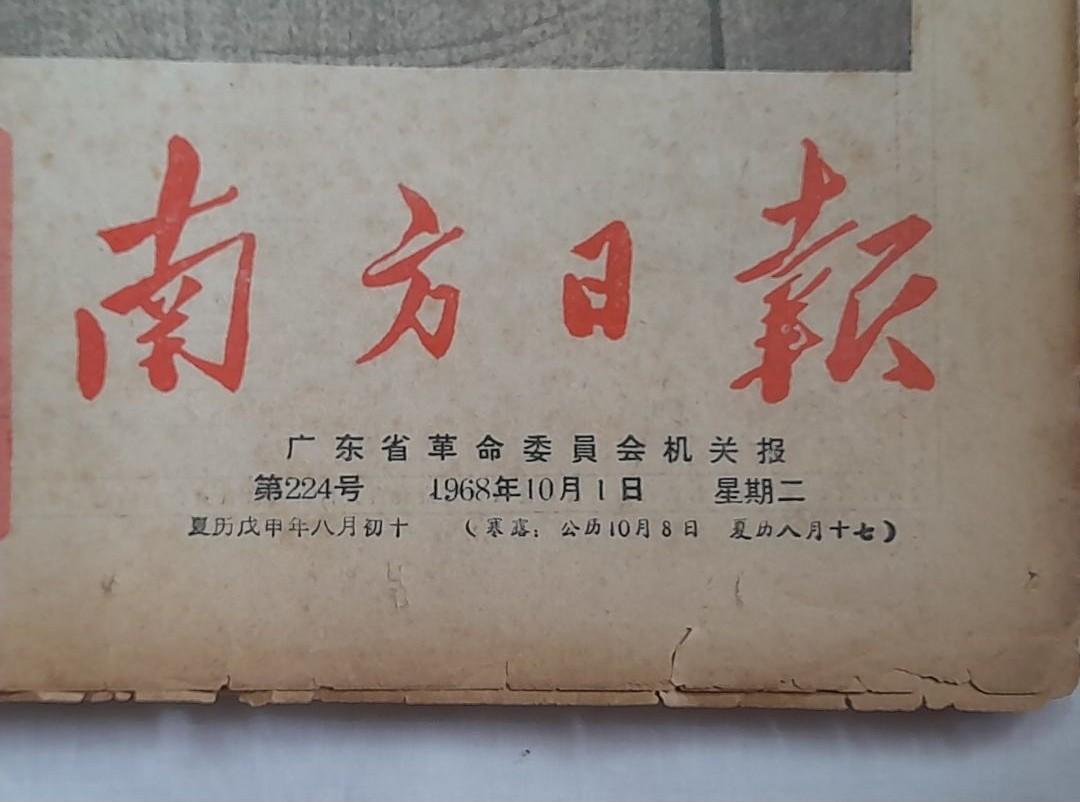 南方日報
广东省革命委員会机关报
第224号 1968年10月1日 星期二
夏历戊申年八月初十 （寒露：公历10月8日 夏历八月十七）